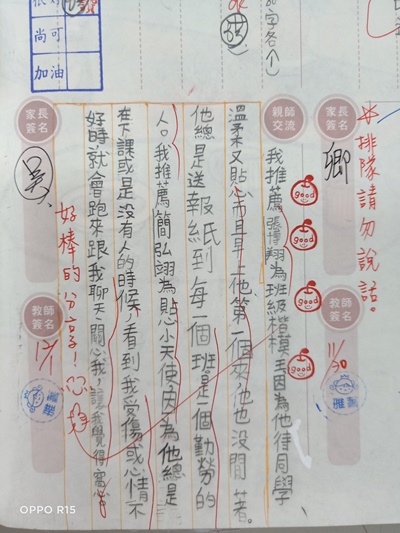 尚可
加油
字各个)
家長簽名
親師交流
家長簽名
卿
*排隊請勿說話。
教師簽名
11/30
我推薦張博翔為班級楷模王因為他待同學
溫柔又貼心而且早上他第一個來,他也沒閒著。
他總是送報紙到每一個班是一個勤勞的
人。我推薦簡弘翊為貼心小天使,因為他總是
在下課或是沒有人的時候,看到我受傷或心情不
好時就會跑來跟我聊天關心我,讓我覺得窩心
good
good
good
good
好棒的分享!
吳
教師簽名
12/1
OPPO R15